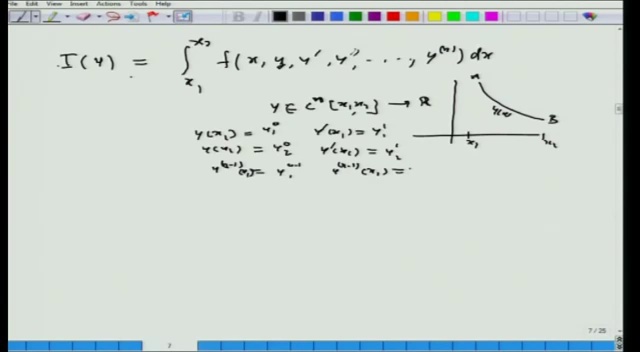 Edit View Insert Actions Tools Help
I(y) = ∫_{x₁}^{x₂} f(x, y, y', y'', ..., y^{(n)}) dx
y ∈ Cⁿ[x₁,x₂] → R
y(x₁) = y₁⁰ y'(x₁) = y₁'
y(x₂) = y₂⁰ y'(x₂) = y₂'
y^{(n-1)}(x₁) = y₁^{n-1} y^{(n-1)}(x₂) =
A
B
y(x)
x₁
x₂
7 / 25
7